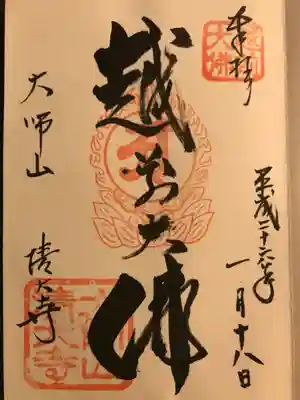 奉拝
越前大佛
平成二十六年
一月十八日
越前大佛
大师山
清大寺
大師山清大寺